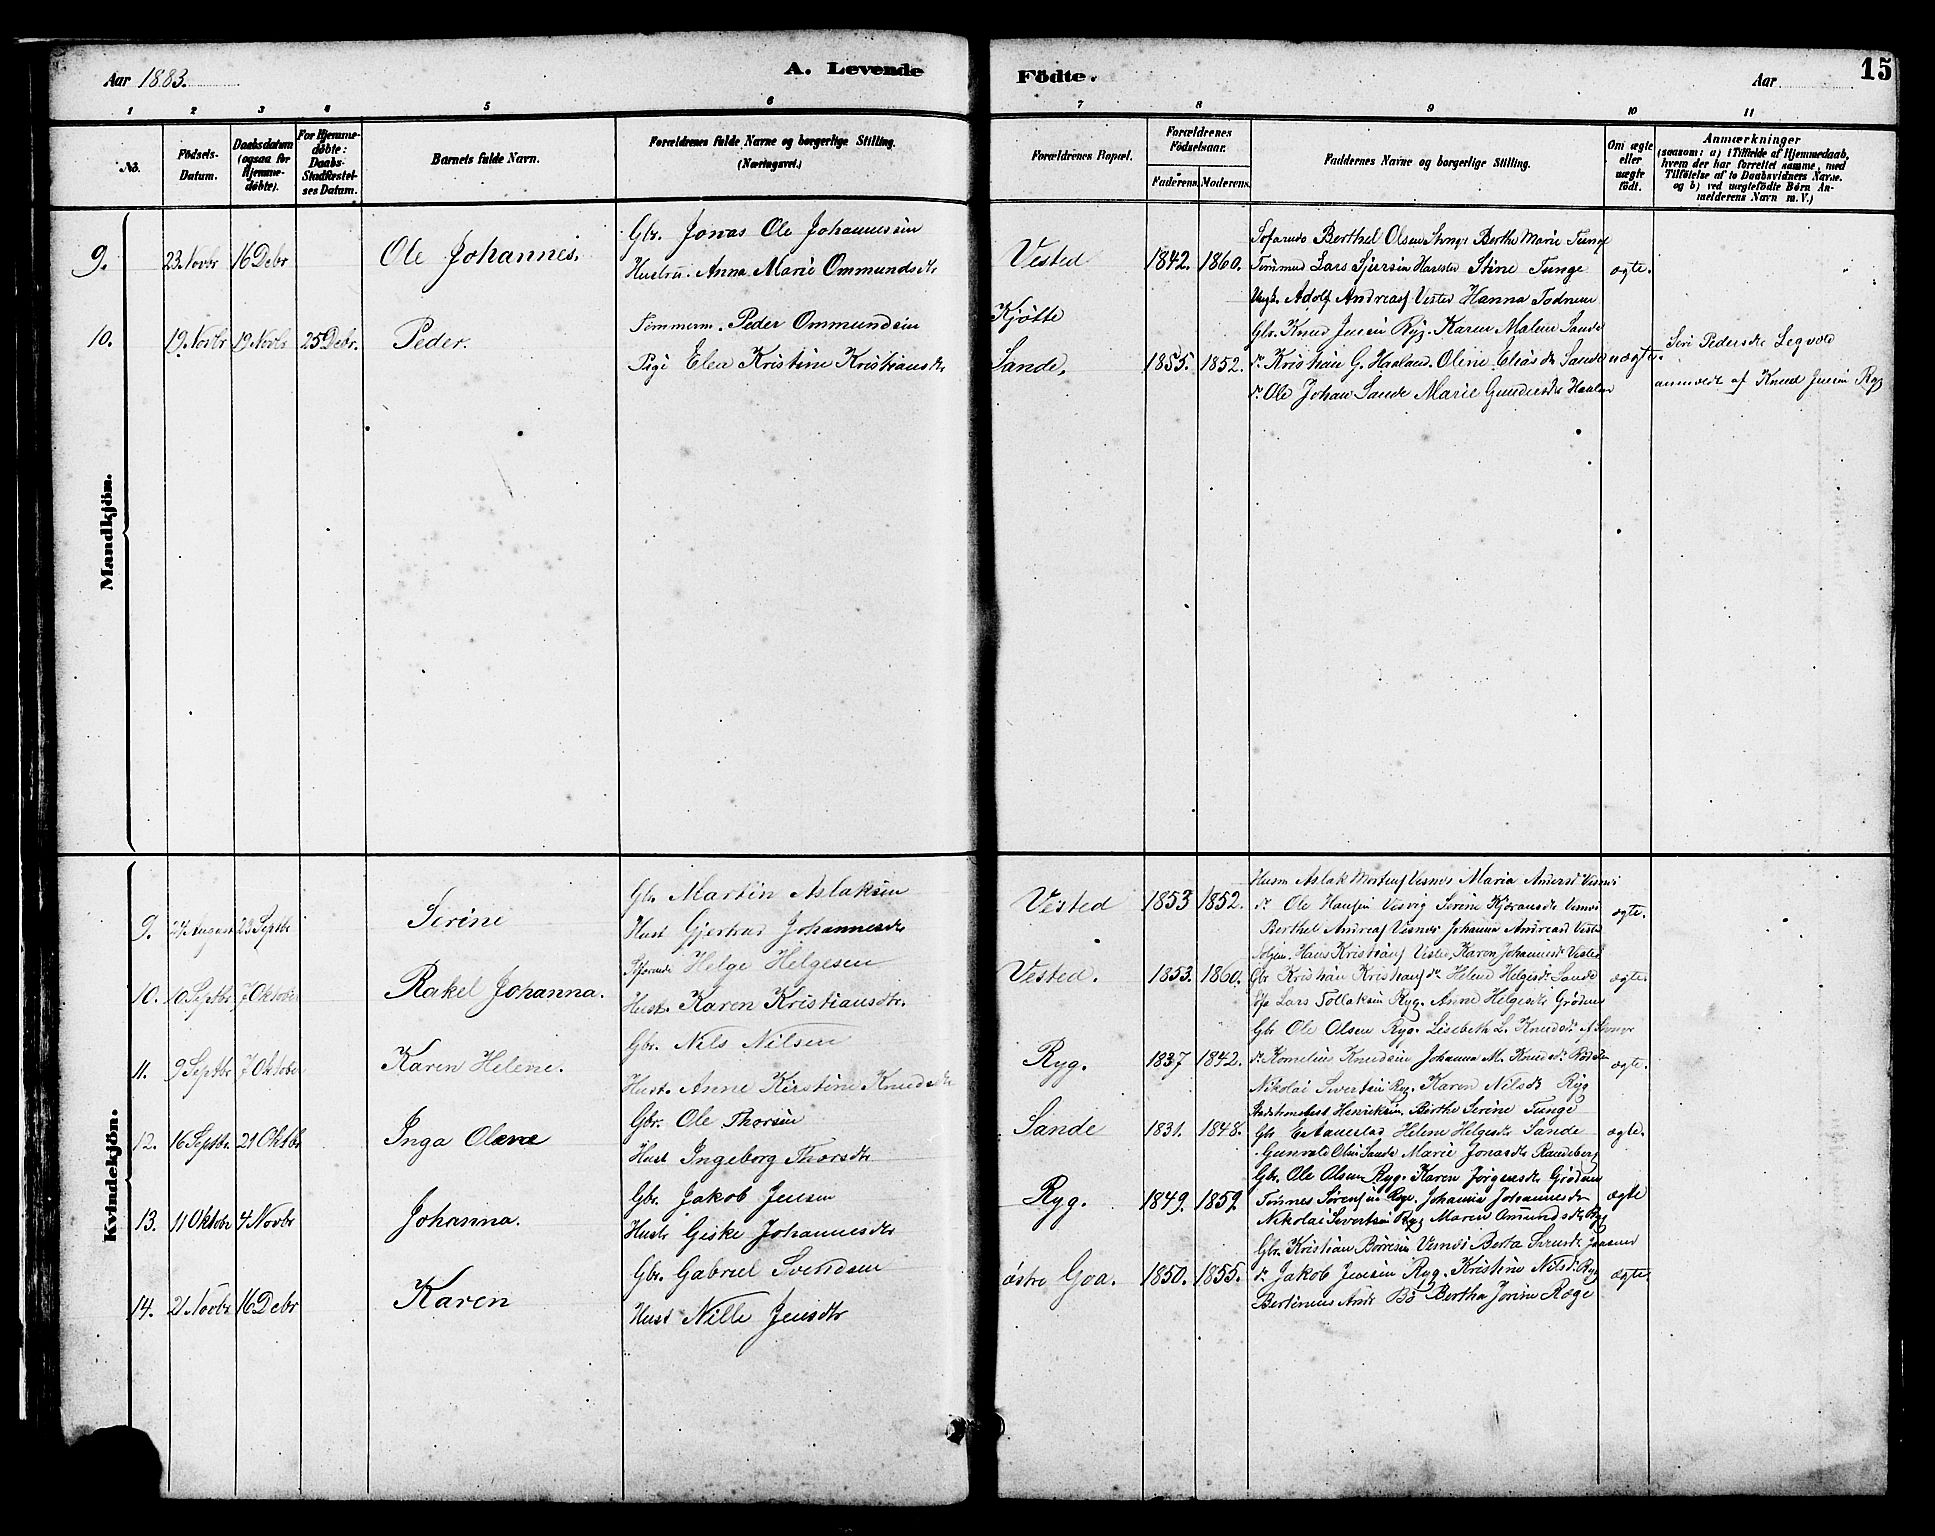 Aar 1883.
A. Levende Födte.
Aar
15
1 2 3 4 5 6 7 8 9 10 11
No.
Födsels-Datum.
Daabsdatum (ogsaa for Hjemme-døbte).
For Hjemme-døbte: Daabs-Stadfæstel-ses Datum.
Barnets fulde Navn.
Forældrenes fulde Navne og borgerlige Stilling. (Næringsvei.)
Forældrenes Bopæl.
Forældrenes Födselsaar.
Faderens. Moderens.
Faddernes Navne og borgerlige Stilling.
Om ægte eller uægte födt.
Anmærkninger
(saasom: a) i Tilfælde af Hjemmedaab, hvem der har forrettet samme, med Tilföielse af to Daabsvidners Navne. og b) ved uægtefödte Börn An-melderens Navn m. V.)
Mandkjön.
9. 23 Novbr 16 Debr Ole Johannes.
Gbr. Jonas Ole Johannesen
Hustru. Anna Marie Ommundsdtr
Vested 1842. 1860.
Berthel Olsen Berthe Marie Tunge
Lars Stine Tunge
ægte.
Adolf Andreas Vested Hanna Todnem
10. 19. Novbr 19 Novbr 25 Debr. Peder.
Tømmerm. Peder Ommundsen
Pige Elen Kristine Kristiansdtr
Kjötte
Sande, 1855. 1852.
Gbr. Knud Jensen Ryg. Karen Malene Sande
Kristian G. Haaland. Oline Eliasdtr Sande
Ole Johan Sande Marie
uægte.
Siri Pedersdtr
anmeldt af Knud Jensen Ryg
Kvindekjön.
9. 24 August 23 Septbr Serine
Gbr. Martin Aslaksen
Hust Gjertrud Johannesdtr
Vested 1853 1852.
Husm Aslak Vesnes Maria Vesnes
Ole Hansen Visvig Serine Vesnes
Berthel Andreas Vesnes Johanna Vested
ægte.
10. 10 Septbr 7 Oktober Rakel Johanna.
Helge Helgesen
Hust. Karen Kristiansdtr.
Vested. 1853. 1860.
Hans Kristians Vested, Karen Johannesd Vested
Gbr Kristian Helene Helgesdtr Sande
Lars Tollaksen Ryg. Anne Helgesdtr Grödem
ægte.
11. 9 Septbr 7 Oktober Karen Helene.
Gbr. Nils Nilsen
Hust. Anne Kirstine Knudsdtr
Ryg. 1837. 1842.
Gbr Ole Olsen Ryg. Lisebeth L. Knudsdtr
Kornelius Knudsen Johanna M. Knudsdtr
Nikolai Sivertsen Ryg. Karen Nilsdtr Ryg
ægte.
12. 16 Septbr 21 Oktbr Inga Olava
Gbr. Ole Thorsen
Hust Ingeborg Thorsdtr
Sande 1831. 1848.
Henriksen. Birthe Serine Tunge
Gbr Helene Helgesdtr Sande
Gunvald Olsen Sande Marie Jonasdtr Randeberg
ægte.
13. 11 Oktobr 4 Novbr Johanna.
Gbr. Jakob Jensen
Hust Giske Johannesdtr
Ryg. 1849. 1859
Gbr. Ole Olsen Ryg. Karen Jörgensdtr Grödem
Tönnes Sörensen Ryg. Johanna Johannesdtr
Nikolai Sivertsen Ryg Maren Omundsdtr Ryg
ægte
14. 21 Novbr 16 Debr Karen
Gbr. Gabriel Svendsen
Hust Nille Jensdtr
östre Goa. 1850. 1855.
Gbr. Kristian Börresen Vesnes Berta
Jakob Jensen Ryg. Kristine Nilsdtr Ryg
Bertinius Bö Bertha Jorine Roge
ægte.